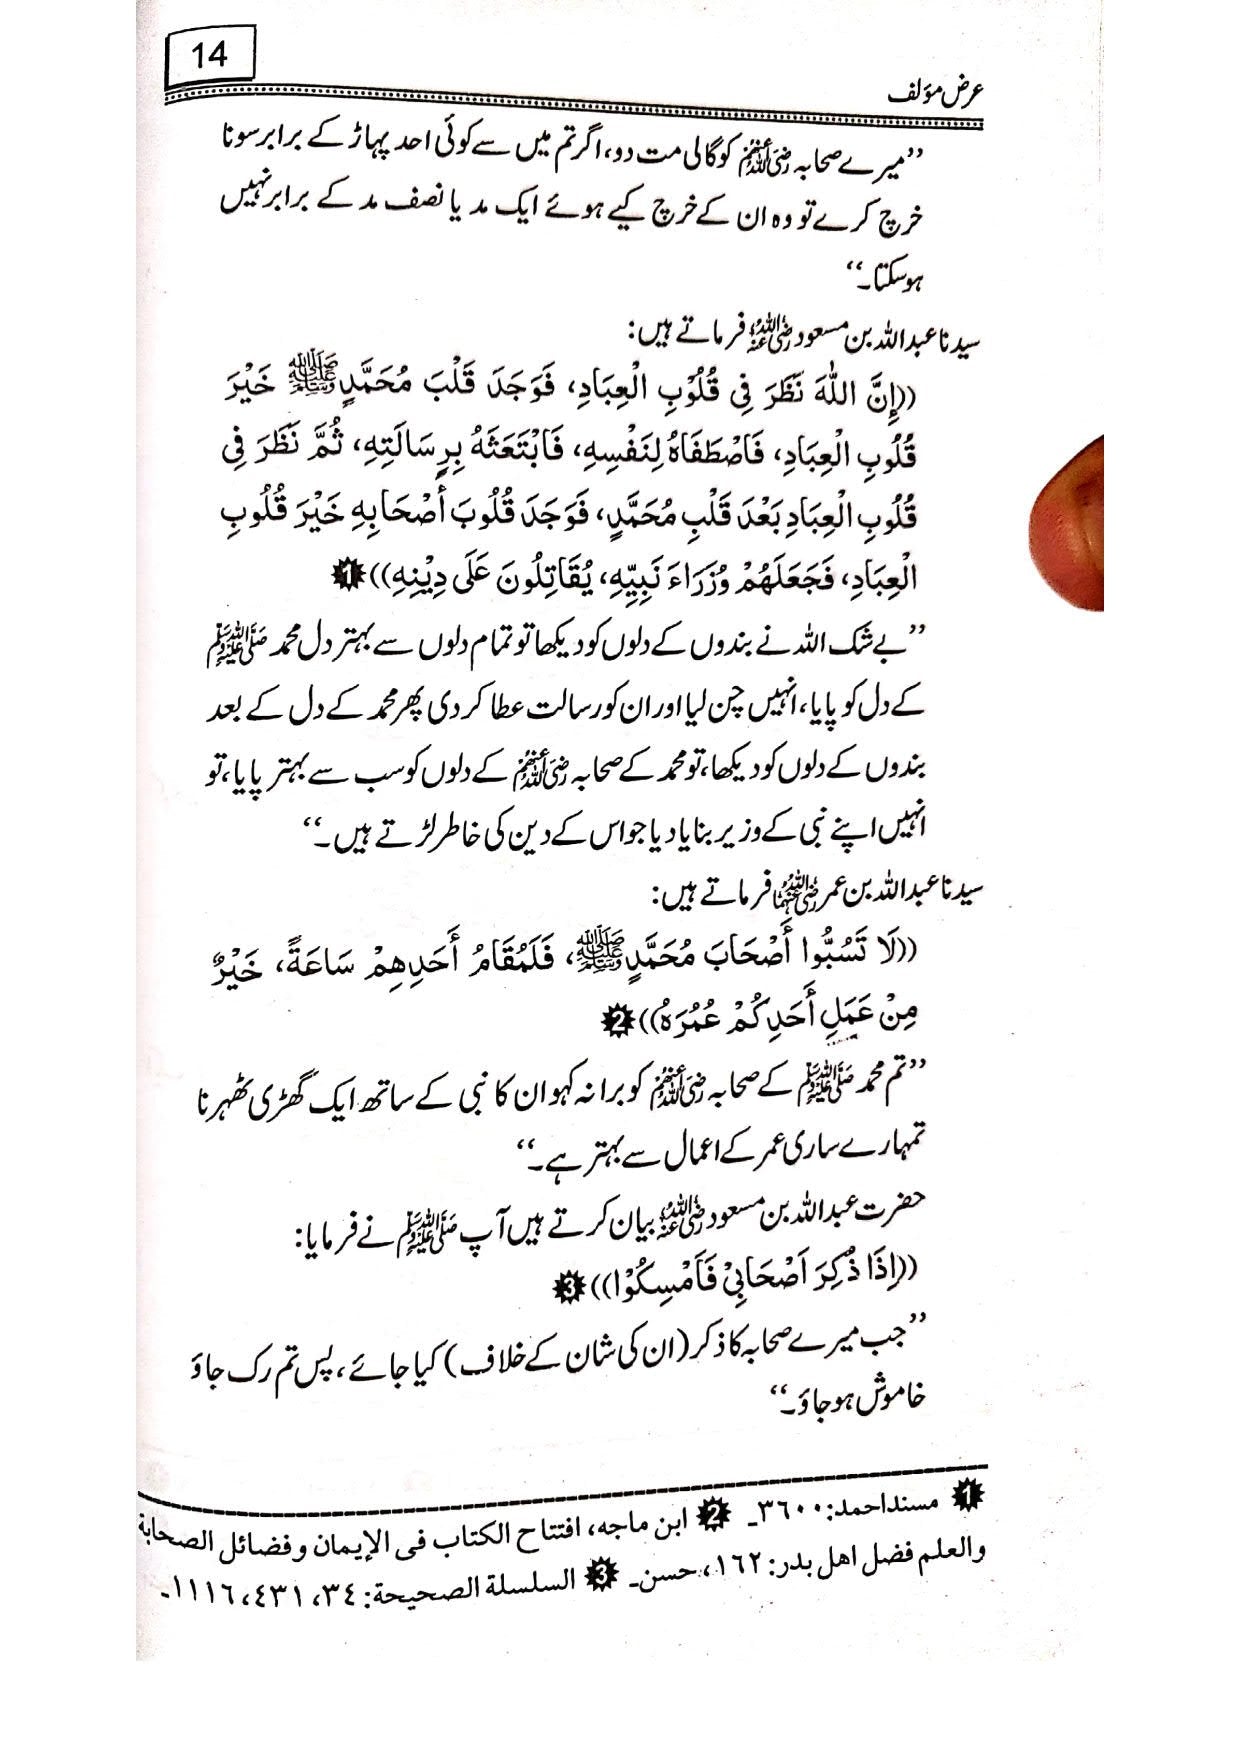 14
عرض مؤلف
’’میرے صحابہ رضی اللہ عنہم کو گالی مت دو، اگر تم میں سے کوئی احد پہاڑ کے برابر سونا
خرچ کرے تو وہ ان کے خرچ کیے ہوئے ایک مد یا نصف مد کے برابر نہیں
ہوسکتا۔‘‘
سیدنا عبداللہ بن مسعود رضی اللہ عنہ فرماتے ہیں:
((إِنَّ اللّٰهَ نَظَرَ فِي قُلُوْبِ الْعِبَادِ، فَوَجَدَ قَلْبَ مُحَمَّدٍ ﷺ خَيْرَ
قُلُوبِ الْعِبَادِ، فَاصْطَفَاهُ لِنَفْسِهِ، فَابْتَعَثَهُ بِرِسَالَتِهِ، ثُمَّ نَظَرَ فِي
قُلُوبِ الْعِبَادِ بَعْدَ قَلْبِ مُحَمَّدٍ، فَوَجَدَ قُلُوبَ أَصْحَابِهِ خَيْرَ قُلُوبِ
الْعِبَادِ، فَجَعَلَهُمْ وُزَرَاءَ نَبِيِّهِ، يُقَاتِلُونَ عَلَى دِيْنِهِ)) 1
’’بے شک اللہ نے بندوں کے دلوں کو دیکھا تو تمام دلوں سے بہتر دل محمد ﷺ
کے دل کو پایا، انہیں چن لیا اور ان کو رسالت عطا کردی پھر محمد کے دل کے بعد
بندوں کے دلوں کو دیکھا، تو محمد کے صحابہ رضی اللہ عنہم کے دلوں کو سب سے بہتر پایا، تو
انہیں اپنے نبی کے وزیر بنایا دیا جو اس کے دین کی خاطر لڑتے ہیں۔‘‘
سیدنا عبداللہ بن عمر رضی اللہ عنہما فرماتے ہیں:
((لَا تَسُبُّوا أَصْحَابَ مُحَمَّدٍ ﷺ، فَلَمُقَامُ أَحَدِهِمْ سَاعَةً، خَيْرٌ
مِنْ عَمَلِ أَحَدِكُمْ عُمُرَهُ)) 2
’’تم محمد ﷺ کے صحابہ رضی اللہ عنہم کو برا نہ کہو ان کا نبی کے ساتھ ایک گھڑی ٹھہرنا
تمہارے ساری عمر کے اعمال سے بہتر ہے۔‘‘
حضرت عبداللہ بن مسعود رضی اللہ عنہ بیان کرتے ہیں آپ ﷺ نے فرمایا:
((اِذَا ذُكِرَ اَصْحَابِيْ فَاَمْسِكُوْا)) 3
’’جب میرے صحابہ کا ذکر (ان کی شان کے خلاف) کیا جائے، پس تم رک جاؤ
خاموش ہوجاؤ۔‘‘
1 مسند احمد: ٣٦٠٠۔ 2 ابن ماجه، افتتاح الكتاب فى الإيمان وفضائل الصحابة
والعلم فضل اهل بدر: ١٦٢، حسن۔ 3 السلسلة الصحيحة: ٣٤، ٤٣١، ١١١٦۔